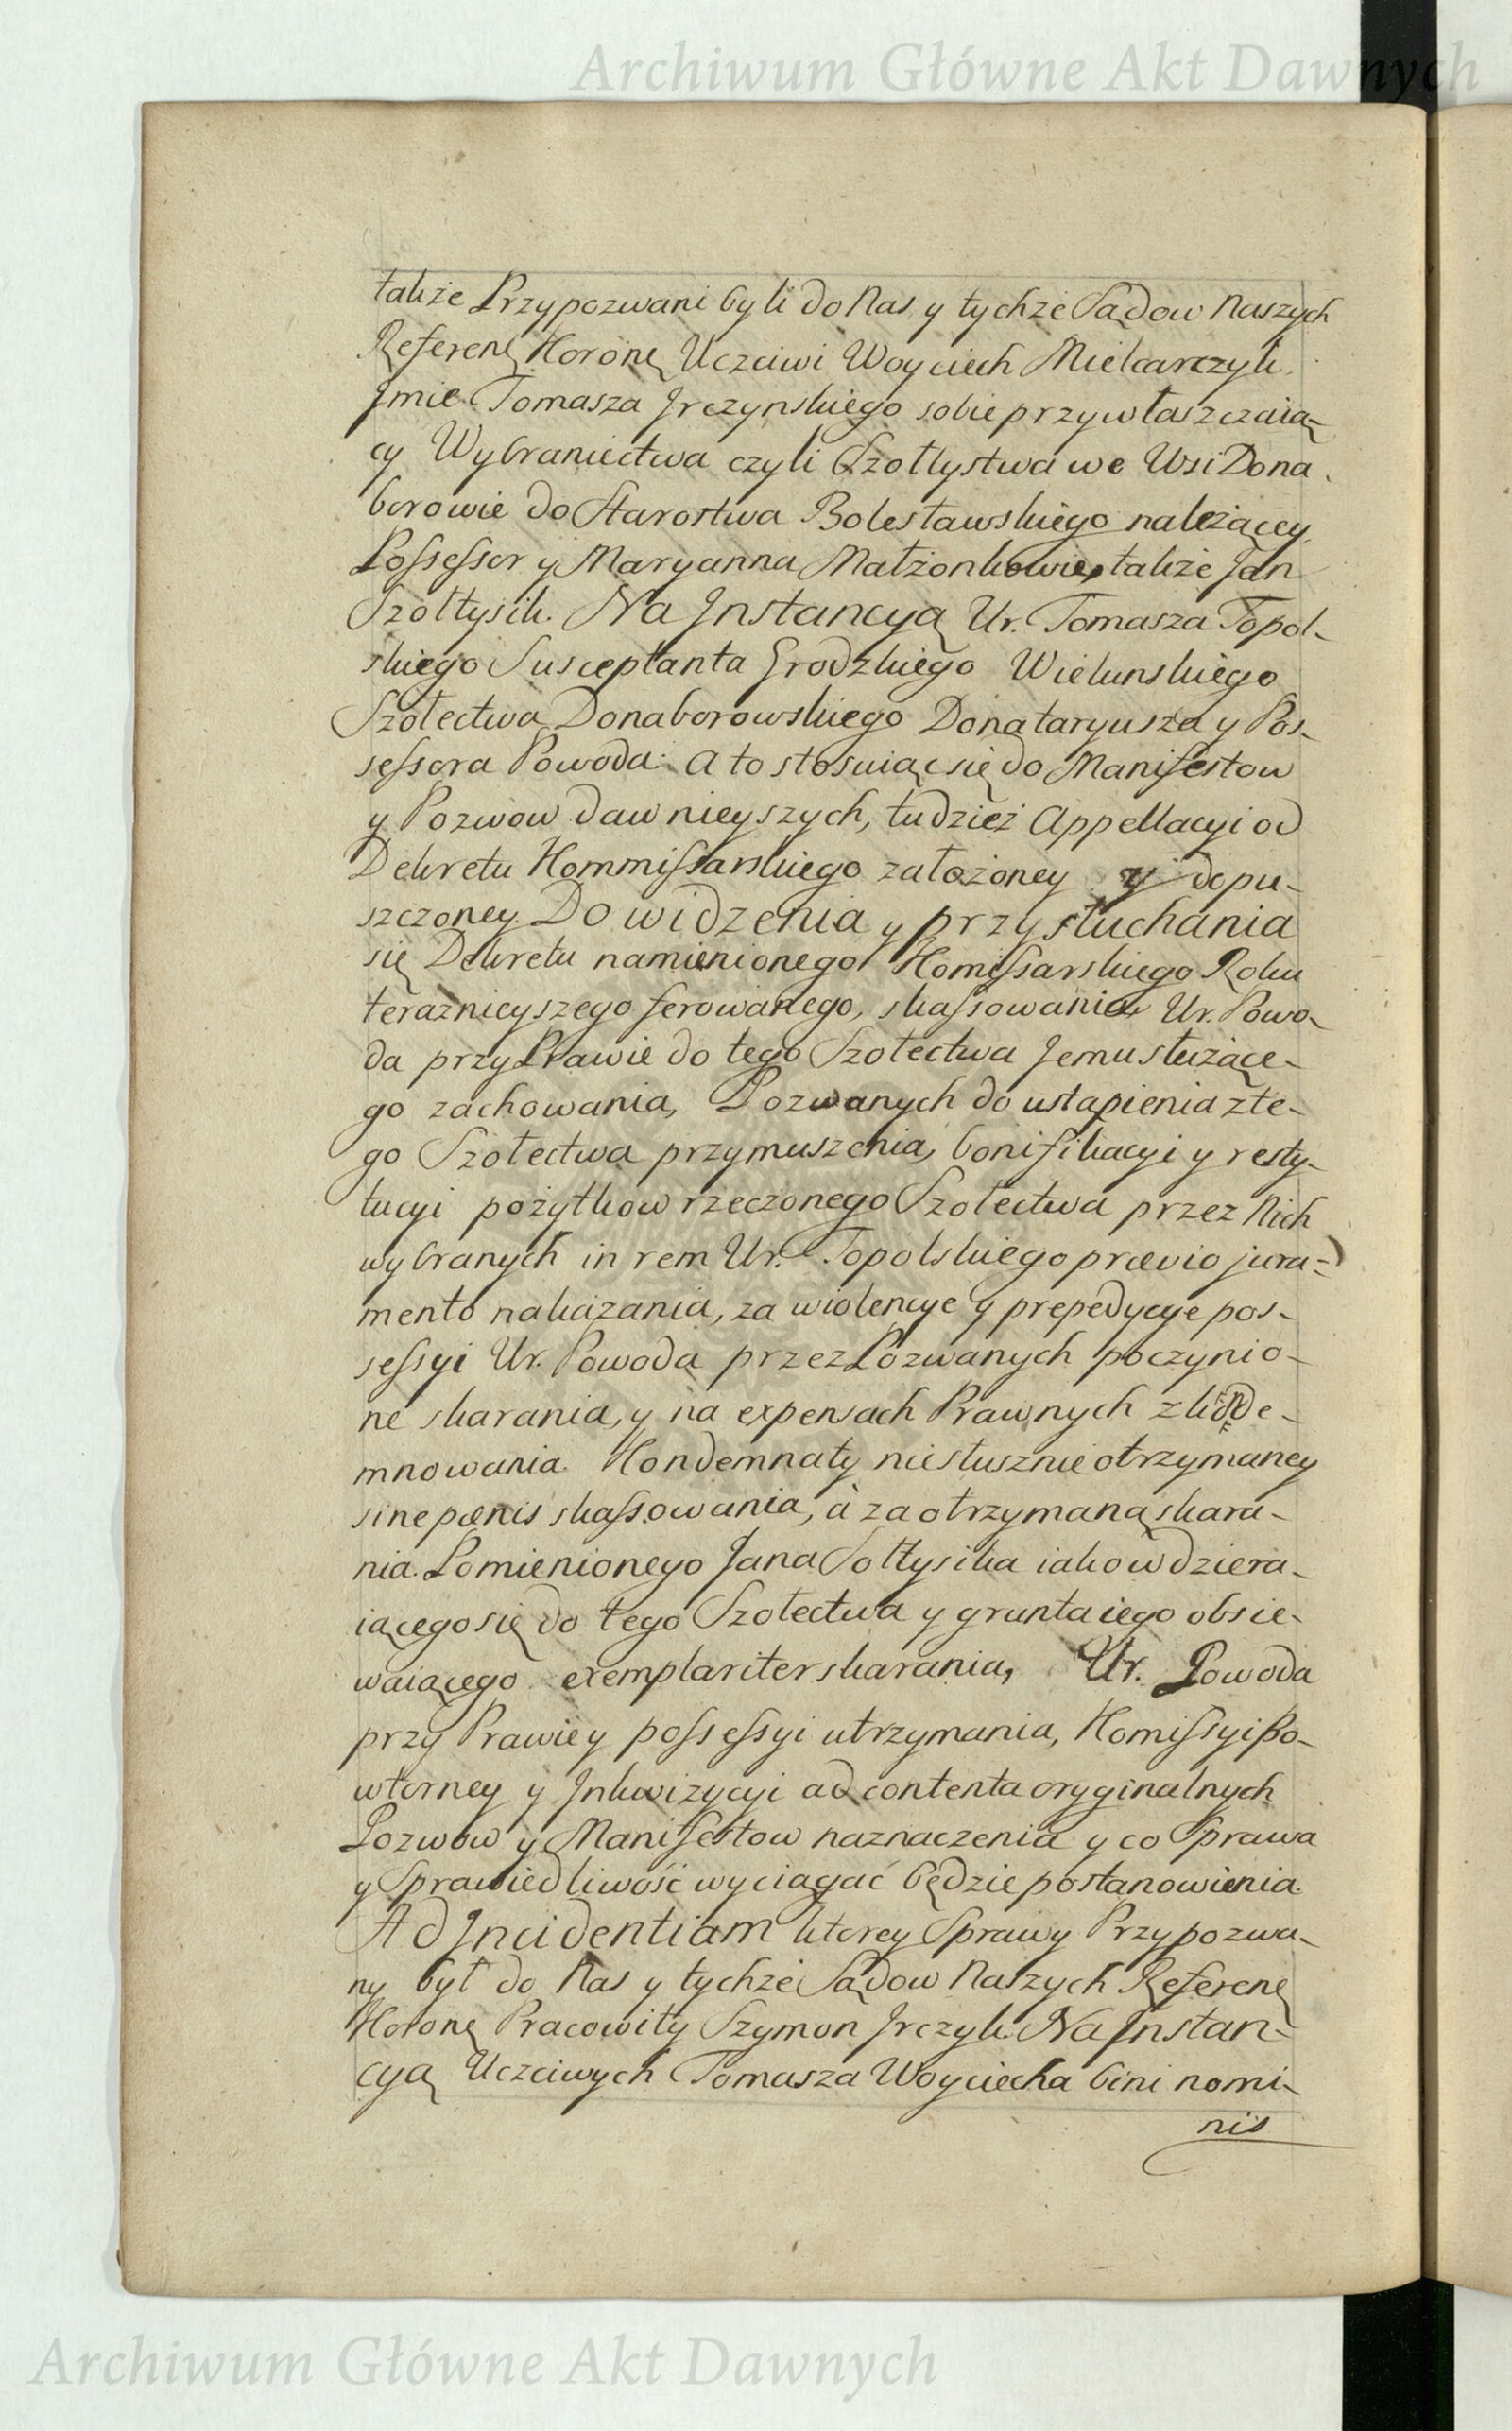 Archiwum Główne Akt Dawnych
także Przypozwani byli do Nas y tychże Sądow Naszych
Referenę Koronę Uczciwi Woyciech Mielcarczyk
Jmie Tomasza Jrczynskiego sobie przywłaszczaią-
cy Wybraniectwa czyli Szołtystwa we Wsi Dona
borowie do Starostwa Bolesławskiego należącey
Possessor y Maryanna Małżonkowie, także Jan
Szołtysik. Na Jnstancyą Ur. Tomasza Topol-
skiego Susceptanta Grodzkiego Wielunskiego
Szołectwa Donaborowskiego Donataryusza y Pos-
sessora Powoda: A to stosuiąc się do Manifestow
y Pozwow dawnieyszych, tudzież Appellacyi od
Dekretu Kommissarskiego założoney y dopu-
szczoney. Do widzenia y przysłuchania
się Dekretu namienionego Komissarskiego Roku
teraznieyszego ferowanego, skassowania, Ur. Powo-
da przy Prawie do tego Szołectwa Jemu służące-
go zachowania, Pozwanych do ustąpienia z te-
go Szołectwa przymuszenia, bonifikacyi y resty-
tucyi pożytkow rzeczonego Szołectwa przez Nich
wybranych in rem Ur. Topolskiego prævio jura-
mento nakazania, za wiolencye y prepedycye pos-
sessyi Ur. Powoda przez Pozwanych poczynio-
ne skarania, y na expensach Prawnych
mnowania. Kondemnaty niesłusznie otrzymaney
sine pœnis skassowania, à za otrzymaną skara-
nia. Pomienionego Jana Sołtysika iako wdziera-
iącego się do tego Szołectwa y grunta iego obsie-
waiącego exemplariter skarania, Ur. Powoda
przy Prawie y possessyi utrzymania, Komissyi Po-
wtorney y Jnkwizycyi ad contenta oryginalnych
Pozwow y Manifestow naznaczenia y co Sprawa
y Sprawiedliwość wyciągać będzie postanowienia.
Ad Jncidentiam ktorey Sprawy Przypozwa-
ny był do Nas y tychże Sądow Naszych Referenę
Koronę Pracowity Szymon Jrczyk. Na Jnstan-
cyą Uczciwych Tomasza Woyciecha bini nomi-
nis
Archiwum Główne Akt Dawnych